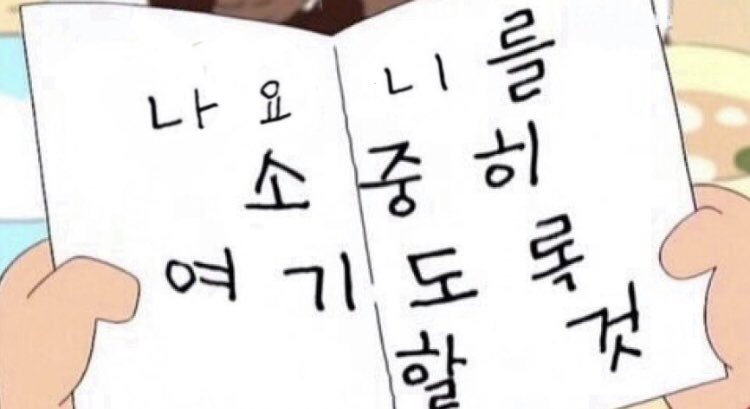 나요니를
소중히
여기도록
할것